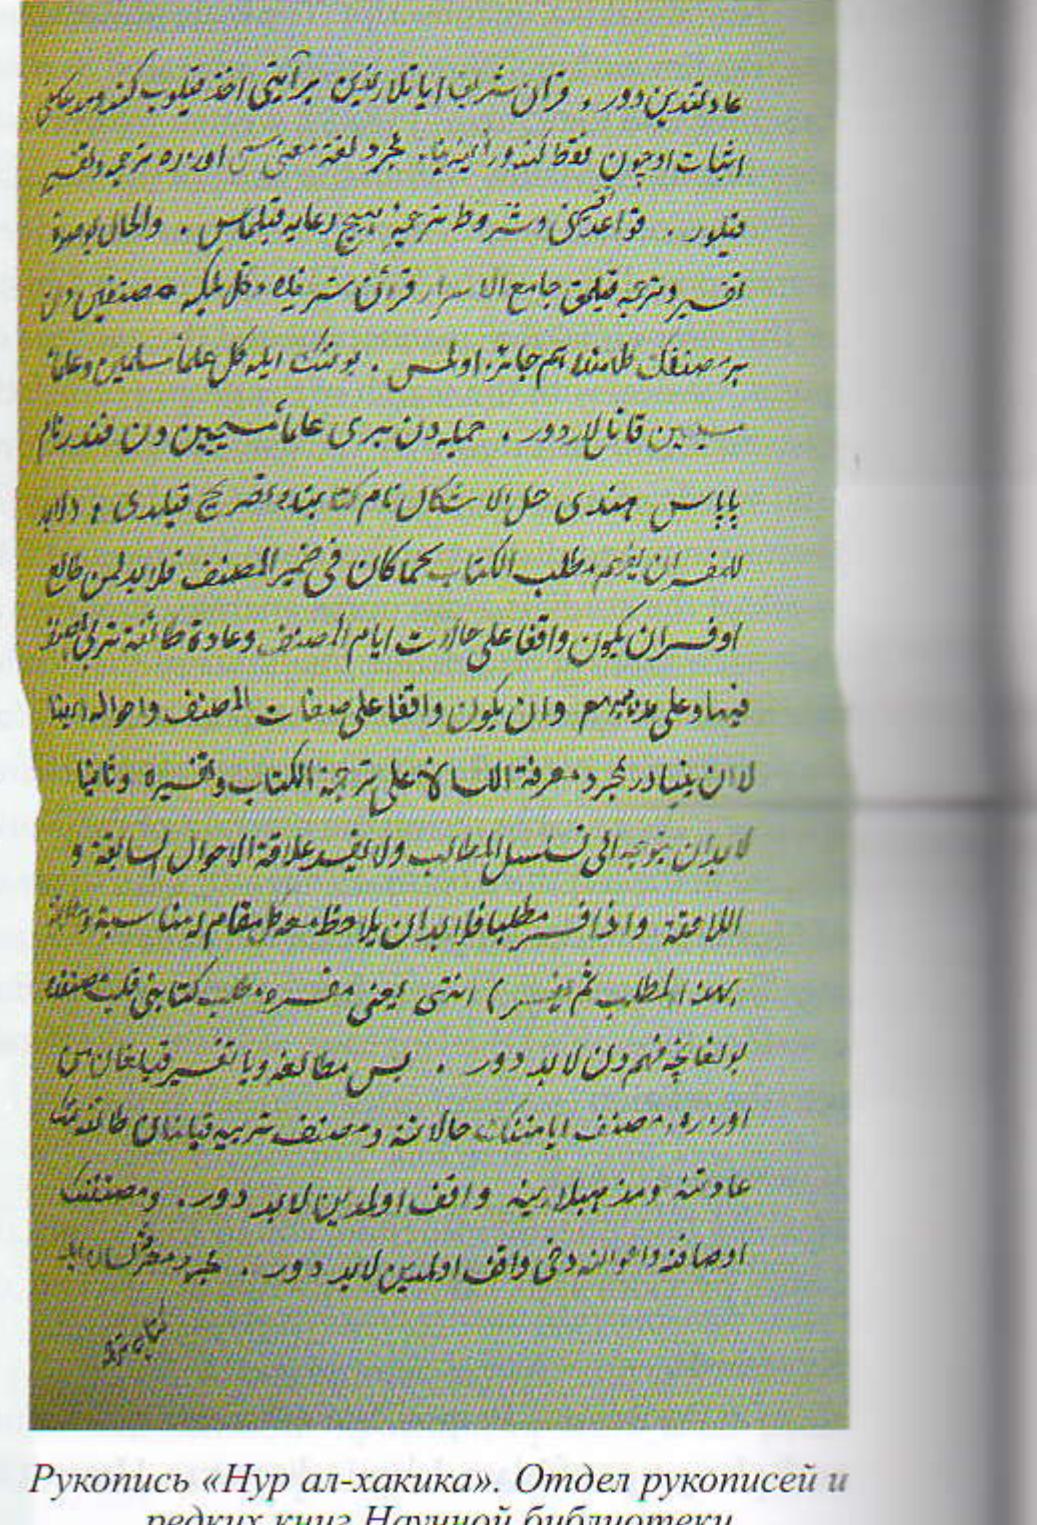 عادلتدین دور، قرآن شریف ایاتلارندین بر آیتی اخذ قیلوب
اثبات اوچون فقط مجرد لغة معنی سی اوزره ترجمه وتفسیر
قیلور . قواعد وشروط ترجمه هیچ رعایه قیلماس . والحال بو
تفسیر وترجمه قیلمق جامع الاسرار قرآن شریفده دکل بلکه مصنفین دن
بر مصنفنك کلامنده هم جائز اولمس . بوننك ایله کل علمأ مسلمین وعلمأ
مسیحیین قائل لار دور . جمله دن بری علمأ مسیحیین دن فندر نام
پاپاس هندی حل الاشکال نام کتابنده تصریح قیلدی ؛ (لابد
للمفسر ان یفهم مطلب الکتاب کما کان فی ضمیر المصنف فلابد لمن طالع
او فسر ان یکون واقفا علی حالات ایام المصنف وعادة طائفة تربی المصنف
فیها وعلی مذهبهم وان یکون واقفا علی صفات المصنف واحواله ایضا
لا ان یتبادر بمجرد معرفة اللسان علی ترجمة الکتاب وتفسیره وثانیا
لابد ان یتوجه الی تسلسل المطالب ولا یفسد علاقة الاحوال السابقة و
اللاحقة واذا فسر مطلبا فلابد ان یلاحظ معه کل مقام له مناسبة
بهذا المطلب ثم یفسر) انتهی یعنی مفسره مطلب کتابنی قلب مصنفده
بولغانچه فهم دن لابد دور . پس مطالعه ویا تفسیر قیلغان
اوزره مصنف ایامننك حالاتنه ومصنف تربیه قیلنان طائفه ننك
عادتنه ومذهبلارینه واقف اولمدین لابد دور . ومصنفننك
اوصافنه واحوالنه دخی واقف اولمدین لابد دور . مجرد معرفت لسان ایله
Рукопись «Нур ал-хакика». Отдел рукописей и
редких книг Научной библиотеки